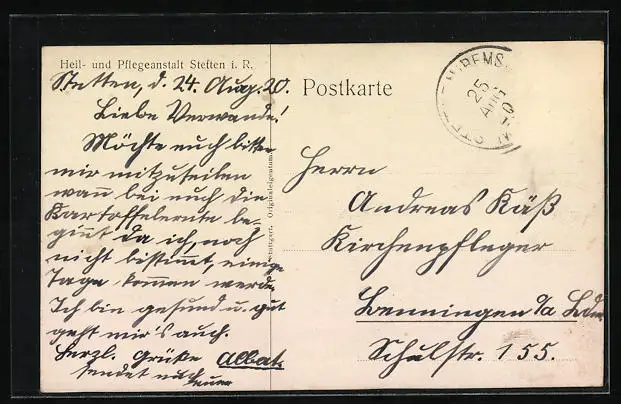 Heil- und Pflegeanstalt Stetten i. R.
Stetten, d. 24. Aug. 20.
Liebe Verwande!
Möchte euch bitten
mir mitzuteilen
wañ bei euch die
Kartoffelernte be-
giñt da ich, noch
nicht bestimt, einige
Tage kommen werde.
Ich bin gesund u. gut
geht mir's auch.
Herzl. Grüße Albert
sendet euch
euer
Postkarte
REMS
25
AUG
Herrn
Andreas Käß
Kirchenpfleger
Benningen a/
Schulstr. 155.
Stuttgart. Originaleigentum